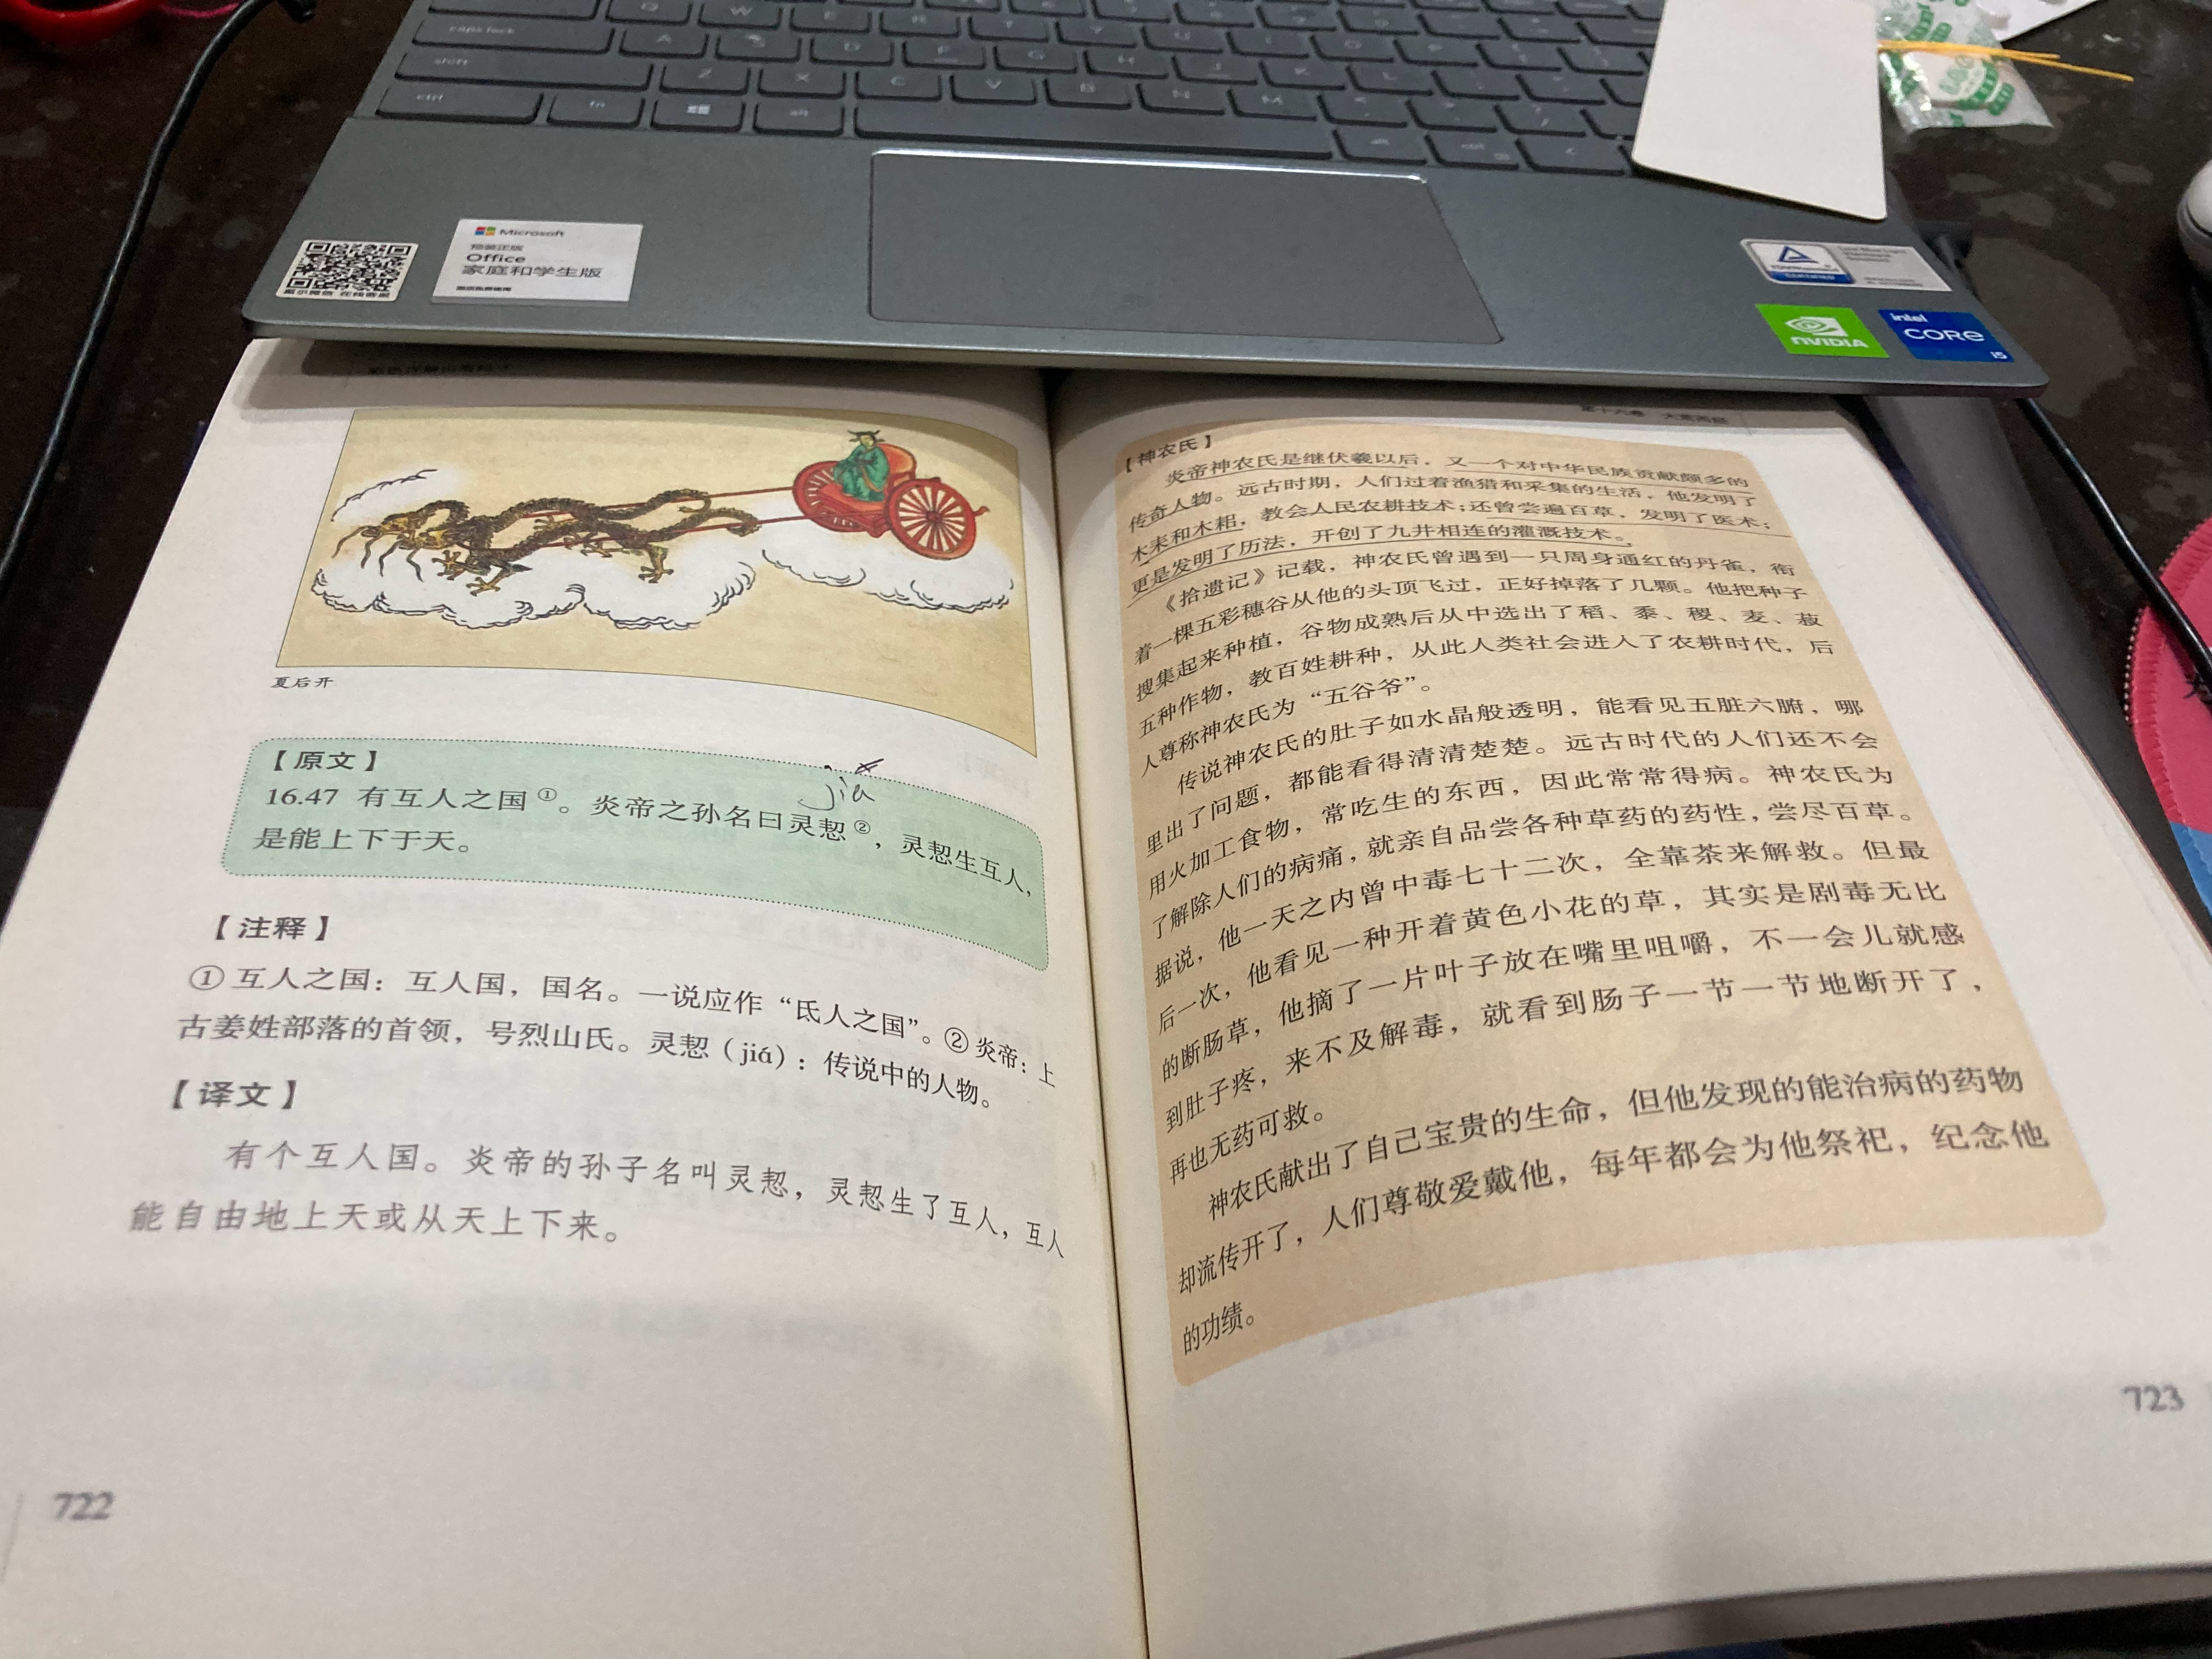 Q
W
E
R
caps lock
A
D
F
G
H
J
K
L
shift
Z
X
C
V
B
N
M
ctrl
fn
alt
ctrl
Microsoft
预装正版
Office
家庭和学生版
戴尔微信 在线客服
NVIDIA
intel
CORE
i5
夏后开
【原文】
jiá
16.47 有互人之国①。炎帝之孙名曰灵恝②，灵恝生互人，
是能上下于天。
【注释】
①互人之国：互人国，国名。一说应作“氐人之国”。②炎帝：上
古姜姓部落的首领，号烈山氏。灵恝（jiá）：传说中的人物。
【译文】
有个互人国。炎帝的孙子名叫灵恝，灵恝生了互人，互人
能自由地上天或从天上下来。
722
第十六卷 大荒西经
【神农氏】
炎帝神农氏是继伏羲以后，又一个对中华民族贡献颇多的
传奇人物。远古时期，人们过着渔猎和采集的生活，他发明了
木耒和木耜，教会人民农耕技术；还曾尝遍百草，发明了医术；
更是发明了历法，开创了九井相连的灌溉技术。
《拾遗记》记载，神农氏曾遇到一只周身通红的丹雀，衔
着一棵五彩穗谷从他的头顶飞过，正好掉落了几颗。他把种子
搜集起来种植，谷物成熟后从中选出了稻、黍、稷、麦、菽
五种作物，教百姓耕种，从此人类社会进入了农耕时代，后
人尊称神农氏为“五谷爷”。
传说神农氏的肚子如水晶般透明，能看见五脏六腑，哪
里出了问题，都能看得清清楚楚。远古时代的人们还不会
用火加工食物，常吃生的东西，因此常常得病。神农氏为
了解除人们的病痛，就亲自品尝各种草药的药性，尝尽百草。
据说，他一天之内曾中毒七十二次，全靠茶来解救。但最
后一次，他看见一种开着黄色小花的草，其实是剧毒无比
的断肠草，他摘了一片叶子放在嘴里咀嚼，不一会儿就感
到肚子疼，来不及解毒，就看到肠子一节一节地断开了，
再也无药可救。
神农氏献出了自己宝贵的生命，但他发现的能治病的药物
却流传开了，人们尊敬爱戴他，每年都会为他祭祀，纪念他
的功绩。
723